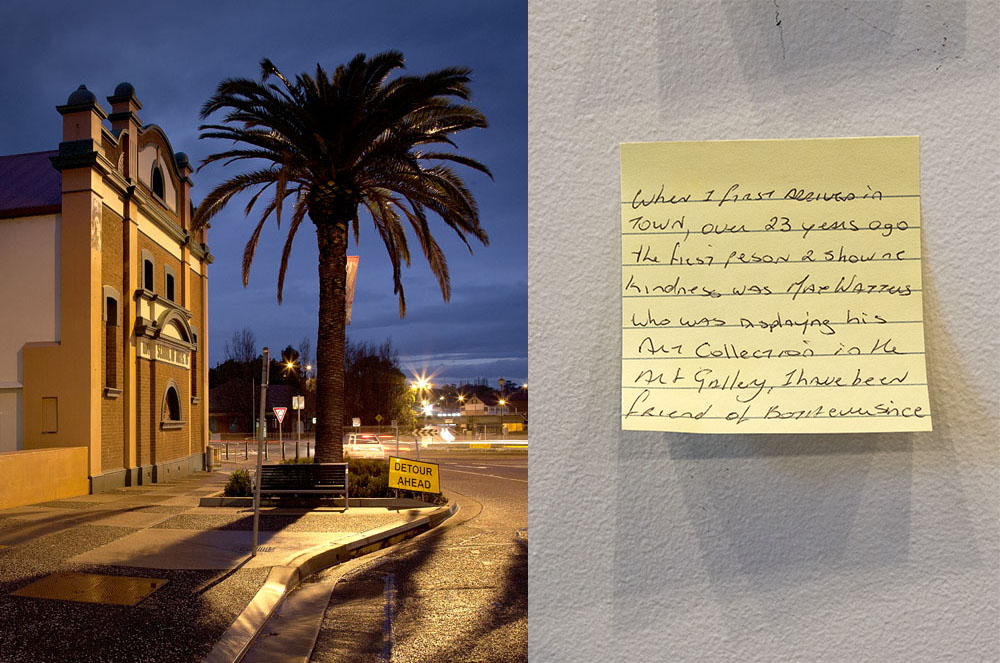 DETOUR
AHEAD
When I first ARRIVED in
TOWN, over 23 years ago
the first peson 2 show me
kindness was MAX WATTERS
who was displaying his
Art Collection in the
Art Gallery, I have been
friend of since